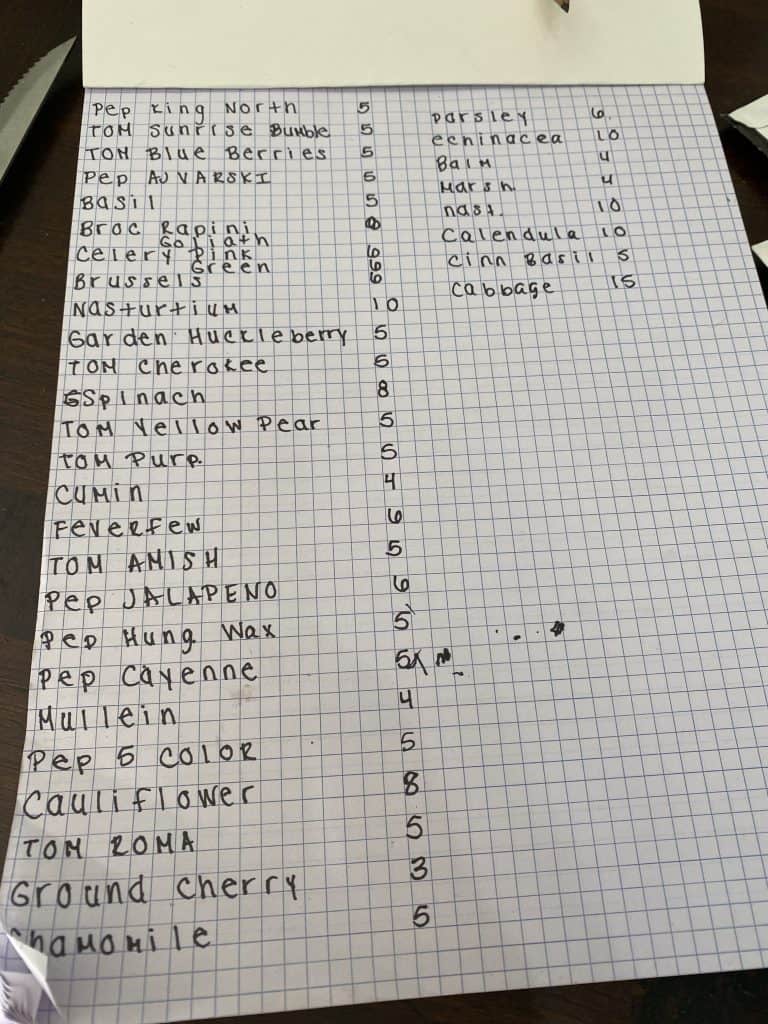 Pep King North 5
TOM Sunrise Bumble 5
TOM Blue Berries 5
Pep AJVARSKI 5
Basil 5
Broc Rapini
Goliath 6
Celery Pink 6
Green 6
Brussels
Nasturtium 10
Garden Huckleberry 5
TOM Cherokee 5
Spinach 8
TOM Yellow Pear 5
TOM Purp. 5
CUMin 4
FeVERFew 6
TOM AMISH 5
Pep JALAPENO 6
Pep Hung Wax 5
Pep Cayenne 5
Mullein 4
Pep 5 COLOR 5
Cauliflower 8
TOM ROMA 5
Ground cherry 3
Chamomile 5
parsley 6
echinacea 10
Balm 4
Marsh. 4
nast. 10
Calendula 10
Cinn Basil 5
Cabbage 15